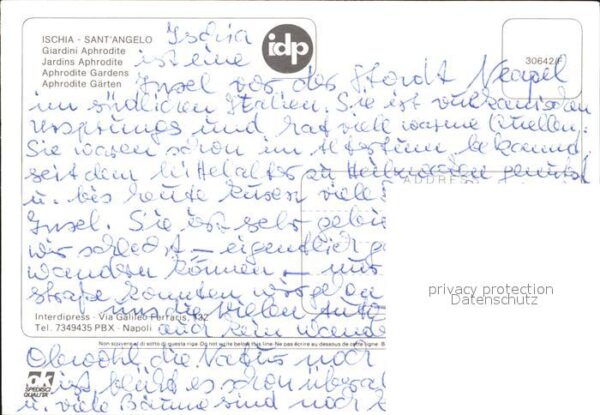 ISCHIA - SANT'ANGELO
Giardini Aphrodite
Jardins Aphrodite
Aphrodite Gardens
Aphrodite Gärten
idp
30642/F
Ischia
ist eine
Insel vor der Stadt Neapel
im südlichen Italien. Sie ist vulkanischen
Ursprungs und hat viele warme Quellen.
Sie waren schon im Altertum bekannt,
seit dem Mittelalter zu Heilzwecken genutzt
u. bis heute kuren viele
ADDRE
Insel. Sie ist sehr gebir
wir schlecht - eigentlich g
wandern können - nur
privacy protection
Datenschutz
straße konnten
Interdipress - Via Galileo Ferraris, 132
uns die vielen Auto
Tel. 7349435 PBX - Napoli
auch kein wande
Non scrivere al di sotto di questa riga. Do not write below this line. Ne pas écrire au dessous de cette ligne. B
Obwohl die Natur noch
ok
SPEDISCI
QUALITÀ
ist blüht es schon überal
u. viele Bäume sind noch